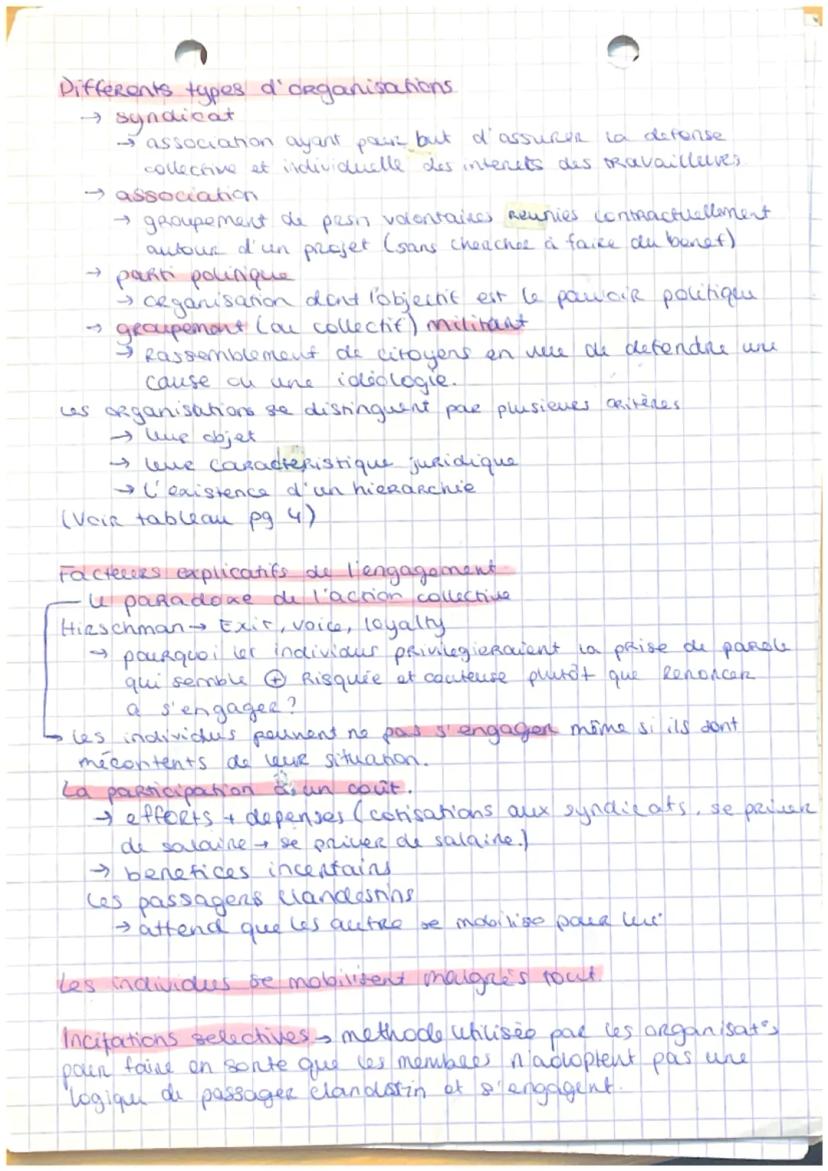 Différents types d'organisations
→ syndicat
→ association ayant pour but d'assurer la defense
collective et individuelle des interets des travailleurs
→ association
→ groupement de pers volontaires réunies contractuellement
autour d'un projet (sans chercher à faire du benef)
→ parti politique
→ organisation dont l'objectif est le pouvoir politique
→ groupement (ou collectif) militant
→ Rassemblement de citoyens en vue de defendre une
cause ou une idéologie.
Les organisations se distinguent par plusieurs critères
→ leur objet
→ leur caractéristique juridique
→ L'existence d'un hierarchie
(Voir tableau pg 4)
Facteurs explicatifs de l'engagement
Le paradoxe de l'action collective
Hirschman → Exit, voice, loyalty
→ pourquoi les individus privilegieraient la prise de parole
qui semble ⊕ Risquée et couteuse plutôt que Renoncer
a s'engager?
→ les individus peuvent ne pas s'engager même si ils sont
mécontents de leur situation.
La participation à un coût.
→ efforts + depenses (cotisations aux syndicats, se priver
de salaire → se priver de salaire.)
→ benefices incertains
Les passagers clandestins
→ attend que les autre se mobilise pour lui
Les individus se mobilisent malgrés tout.
Incitations selectives → methode utilisée par les organisat°s
pour faire en sorte que les membres n'adoptent pas une
logique de passager clandestin et s'engagent.